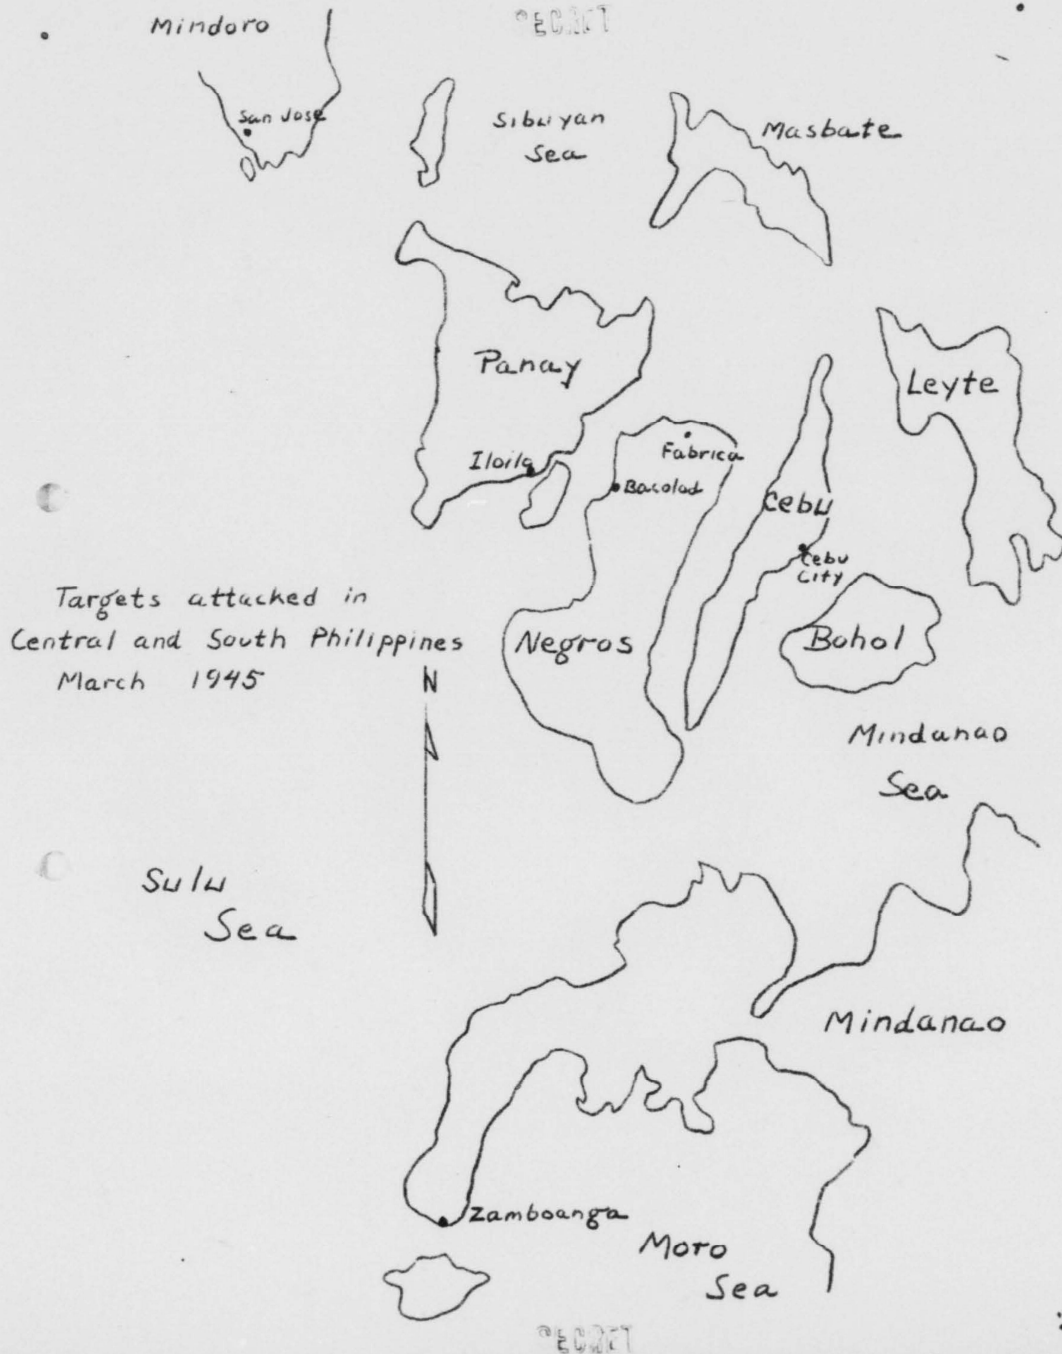 SECRET
Mindoro
San Jose
Sibuyan
Sea
Masbate
Panay
Leyte
Iloilo
Fabrica
Bacolod
Cebu
Cebu
City
Targets attacked in
Central and South Philippines
March 1945
N
Negros
Bohol
Mindanao
Sea
Sulu
Sea
Mindanao
Zamboanga
Moro
Sea
SECRET